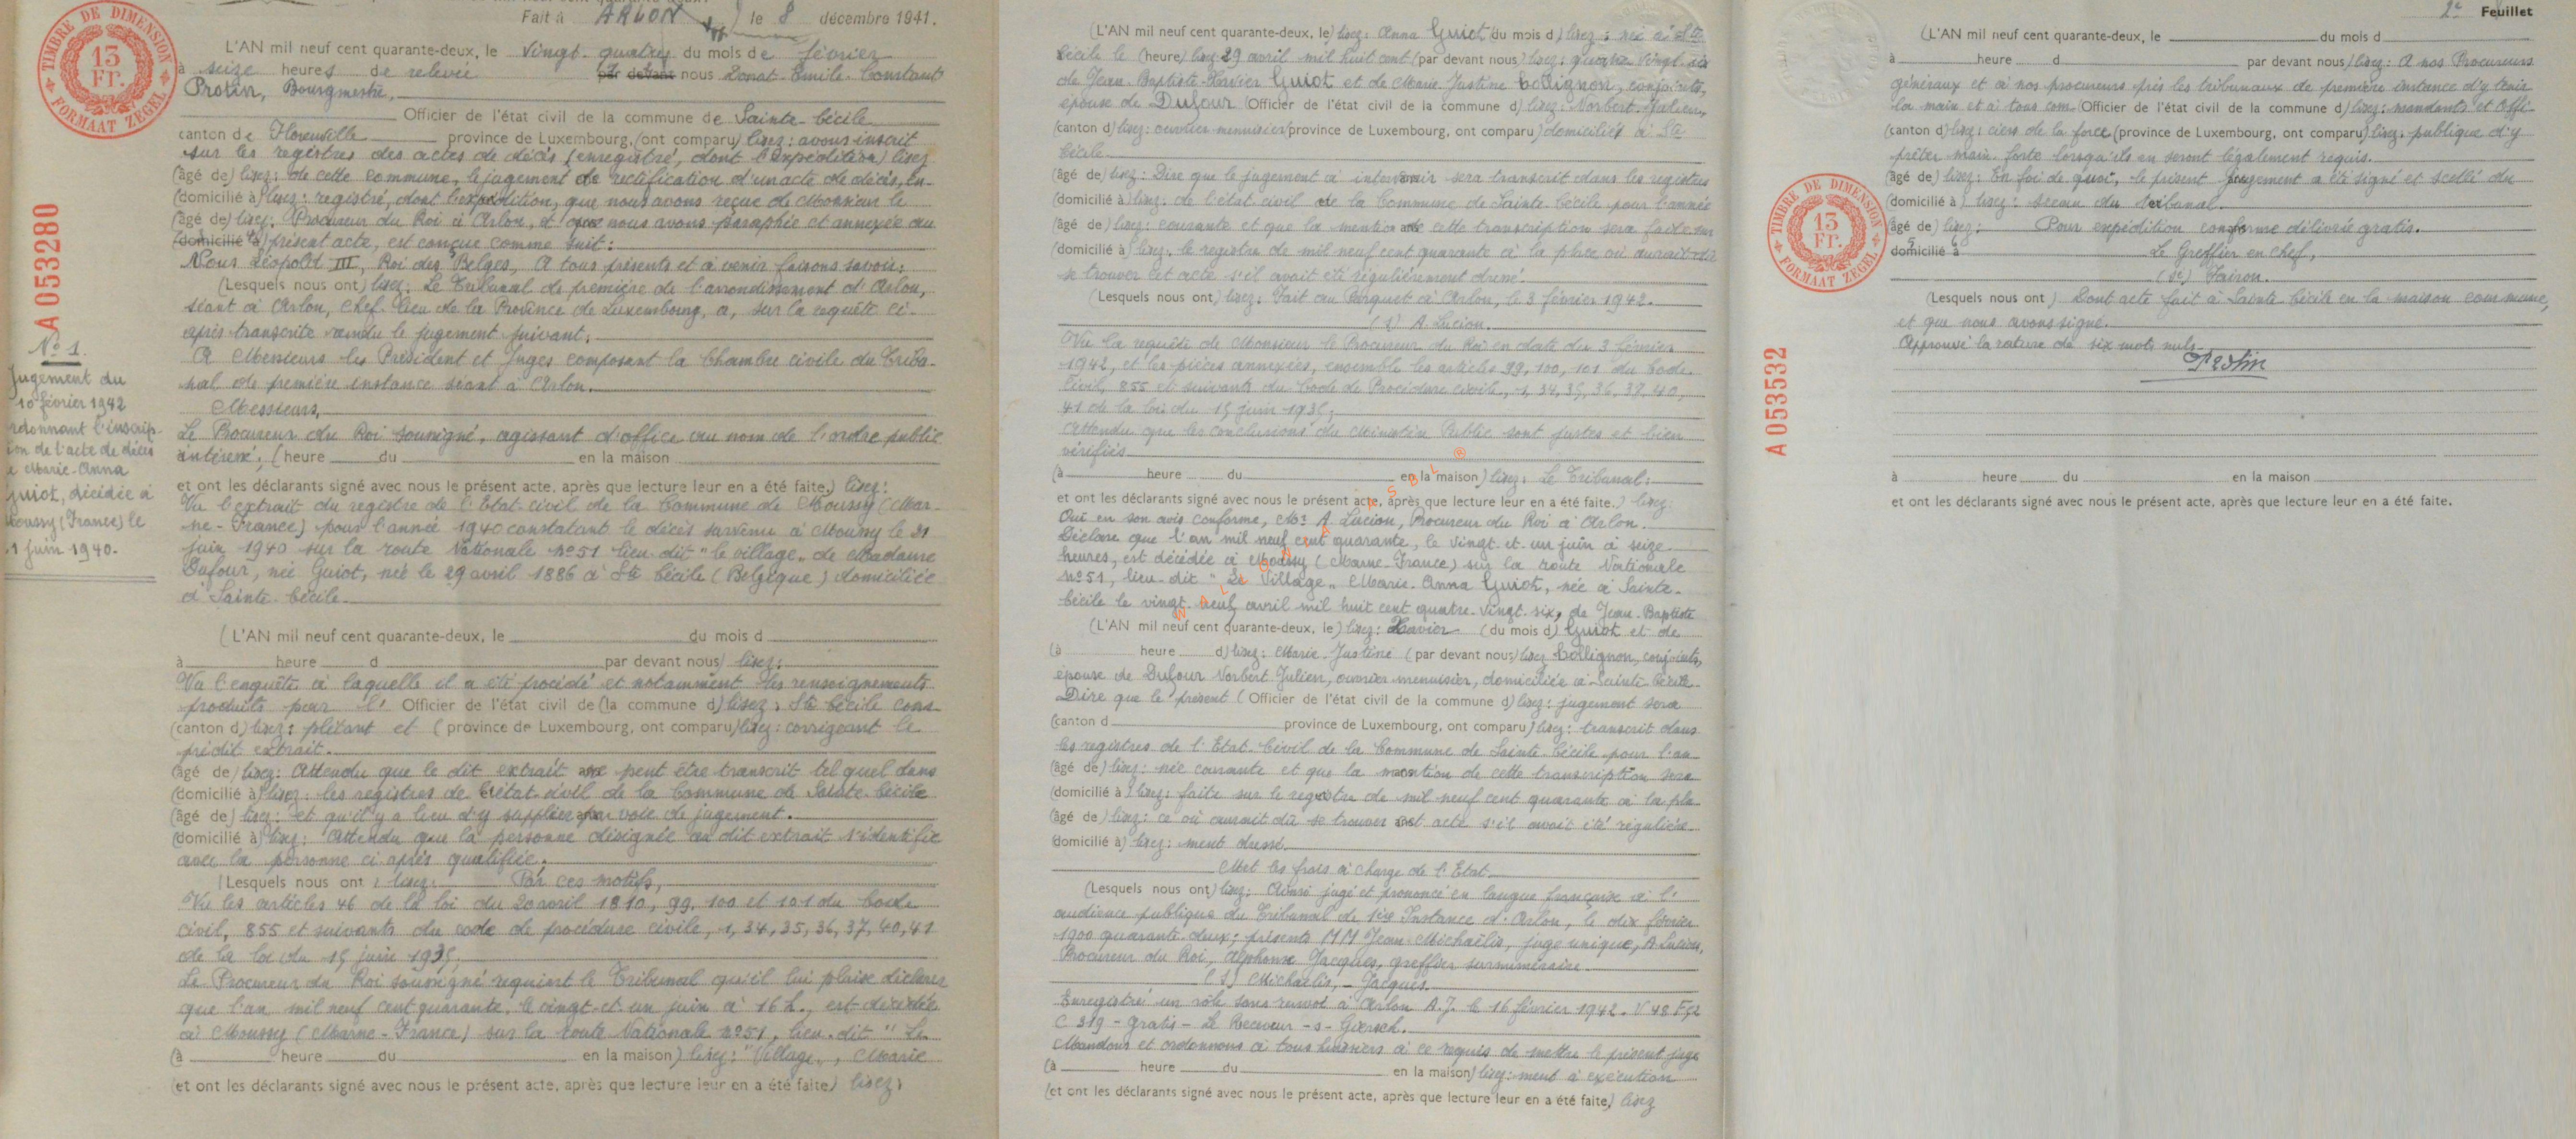 Fait à ARLON le 8 décembre 1941.
TIMBRE DE DIMENSION
13
Fr.
FORMAAT ZEGEL
A 053280
L'AN mil neuf cent quarante-deux, le vingt-quatre du mois de février
à seize heures de relevée par devant nous Donat Emile Constant
Protin, Bourgmestre,
Officier de l'état civil de la commune de Sainte-Cécile
canton de Florenville province de Luxembourg, (ont comparu) lisez: avons inscrit
sur les registres des actes de décès (enregistré, dont l'expédition) lisez
(âgé de) lisez: de cette commune, le jugement de rectification d'un acte de décès, en-
(domicilié à) lisez: registré, dont l'expédition, que nous avons reçue de Monsieur le
(âgé de) lisez: Procureur du Roi à Arlon, et que nous avons paraphée et annexée au
(domicilié à) présent acte, est conçue comme suit:
Nous Léopold III, Roi des Belges, A tous présents et à venir faisons savoir:
(Lesquels nous ont) lisez: Le Tribunal de première de l'arrondissement d'Arlon,
séant à Arlon, chef-lieu de la Province de Luxembourg, a, sur la requête ci-
après transcrite rendu le jugement suivant:
A Messieurs les Président et Juges composant la Chambre civile du Tribu-
nal de première instance séant à Arlon.
Messieurs,
Le Procureur du Roi soussigné, agissant d'office au nom de l'ordre public
intéressé, (heure du en la maison
et ont les déclarants signé avec nous le présent acte, après que lecture leur en a été faite.) lisez:
Vu l'extrait du registre de l'Etat-civil de la Commune de Moussy (Mar-
ne-France) pour l'année 1940 constatant le décès survenu à Moussy le 21
juin 1940 sur la route Nationale n°51 lieu-dit "le village" de Madame
Dufour, née Guiot, née le 29 avril 1886 à Ste Cécile (Belgique) domiciliée
à Sainte-Cécile.
N° 1.
Jugement du
10 février 1942
rdonnant l'inscrip-
ion de l'acte de décès
e Marie-Anna
Guiot, décédée à
Moussy (France) le
1 juin 1940.
(L'AN mil neuf cent quarante-deux, le du mois d
à heure d par devant nous) lisez:
Vu l'enquête à laquelle il a été procédé et notamment les renseignements
produits par l' Officier de l'état civil de (la commune d) lisez: Ste Cécile com-
(canton d) lisez: plétant et (province de Luxembourg, ont comparu) lisez: corrigeant le
prédit extrait.
(âgé de) lisez: Attendu que le dit extrait ne peut être transcrit tel quel dans
(domicilié à) lisez: les registres de l'état-civil de la Commune de Sainte-Cécile
(âgé de) lisez: et qu'il y a lieu d'y suppléer par voie de jugement.
(domicilié à) lisez: Attendu que la personne désignée au dit extrait s'identifie
avec la personne ci-après qualifiée;
(Lesquels nous ont) lisez: Par ces motifs,
Vu les articles 46 de la loi du 20 avril 1810, 99, 100 et 101 du Code
civil, 855 et suivants du code de procédure civile, 1, 34, 35, 36, 37, 40, 41
de la loi du 15 juin 1935;
Le Procureur du Roi soussigné requiert le Tribunal qu'il lui plaise déclarer
que l'an mil neuf cent quarante, le vingt-et-un juin à 16 h., est décédée
à Moussy (Marne-France) sur la route Nationale n°51, lieu-dit "Le
(à heure du en la maison) lisez: "Village", Marie
(et ont les déclarants signé avec nous le présent acte, après que lecture leur en a été faite) lisez:
(L'AN mil neuf cent quarante-deux, le) lisez: Anna Guiot (du mois d) lisez: née à Ste
Cécile le (heure) lisez 29 avril mil huit cent (par devant nous) lisez: quatre-vingt-six
de Jean-Baptiste-Xavier Guiot et de Marie-Justine Collignon, conjoints,
épouse de Dufour (Officier de l'état civil de la commune d) lisez: Norbert-Julien,
(canton d) lisez: ouvrier menuisier (province de Luxembourg, ont comparu) domiciliée à Ste
Cécile
(âgé de) lisez: Dire que le jugement à intervenir sera transcrit dans les registres
(domicilié à) lisez: de l'état civil de la Commune de Sainte-Cécile pour l'année
(âgé de) lisez: courante et que la mention de cette transcription sera faite sur
(domicilié à) lisez: le registre de mil neuf cent quarante à la place où aurait dû
se trouver cet acte s'il avait été régulièrement dressé.
(Lesquels nous ont) lisez: Fait au Parquet à Arlon, le 3 février 1942.
(s) A. Lucion.
Vu la requête de Monsieur le Procureur du Roi en date du 3 février
1942, et les pièces annexées, ensemble les articles 99, 100, 101 du Code
Civil, 855 et suivants du Code de Procédure civile, 1, 34, 35, 36, 37, 40,
41 de la loi du 15 juin 1935;
Attendu que les conclusions du Ministère Public sont justes et bien
vérifiées
(à heure du en la maison) lisez: Le Tribunal:
et ont les déclarants signé avec nous le présent acte, après que lecture leur en a été faite.) lisez:
Ouï en son avis conforme, Mr A. Lucion, Procureur du Roi à Arlon.
Déclare que l'an mil neuf cent quarante, le vingt-et-un juin à seize
heures, est décédée à Moussy (Marne-France) sur la route Nationale
n°51, lieu-dit "Le Village" Marie-Anna Guiot, née à Sainte-
Cécile le vingt-neuf avril mil huit cent quatre-vingt-six, de Jean-Baptiste
(L'AN mil neuf cent quarante-deux, le) lisez: Xavier (du mois d) Guiot et de
(à heure d) lisez: Marie-Justine (par devant nous) lisez Collignon, conjoints,
épouse de Dufour Norbert Julien, ouvrier menuisier, domiciliée à Sainte-Cécile.
Dire que le présent (Officier de l'état civil de la commune d) lisez: jugement sera
(canton d province de Luxembourg, ont comparu) lisez: transcrit dans
les registres de l'Etat-Civil de la Commune de Sainte-Cécile pour l'an-
(âgé de) lisez: née courante et que la mention de cette transcription sera
(domicilié à) lisez: faite sur le registre de mil neuf cent quarante à la pla-
(âgé de) lisez: ce où aurait dû se trouver cet acte s'il avait été régulière-
domicilié à) lisez: ment dressé.
Met les frais à charge de l'Etat.
(Lesquels nous ont) lisez: Ainsi jugé et prononcé en langue française à l'
audience publique du Tribunal de 1ère Instance d'Arlon, le dix février
1900 quarante-deux; présents MM Jean Michaëlis, juge unique, A. Lucion,
Procureur du Roi, Alphonse Jacques, greffier surnuméraire.
(s) Michaëlis, - Jacques.
Enregistré un rôle sans renvoi à Arlon A.J. le 16 février 1942. V 48 F 52
C 319 - gratis - Le Receveur - s - Giersch.
Mandons et ordonnons à tous huissiers à ce requis de mettre le présent juge-
(à heure du en la maison) lisez: ment à exécution
(et ont les déclarants signé avec nous le présent acte, après que lecture leur en a été faite.) lisez
WALLONIA ASBL ®
2e Feuillet
(L'AN mil neuf cent quarante-deux, le du mois d
à heure d par devant nous) lisez: A nos Procureurs
généraux et à nos procureurs près les tribunaux de première instance d'y tenir
la main et à tous com (Officier de l'état civil de la commune d) lisez: mandants et offi-
(canton d) lisez: ciers de la force (province de Luxembourg, ont comparu) lisez: publique d'y
prêter main-forte lorsqu'ils en seront légalement requis.
(âgé de) lisez: En foi de quoi, le présent jugement a été signé et scellé du
(domicilié à) lisez: sceau du tribunal.
(âgé de) lisez: Pour expédition conforme délivrée gratis.
domicilié à Le Greffier en Chef,
(sé)
(Lesquels nous ont) Dont acte fait à Sainte-Cécile en la maison communale,
et que nous avons signé.
Approuvé la rature de six mots nuls.
Protin
TIMBRE DE DIMENSION
13
Fr.
FORMAAT ZEGEL
A 053532
à heure du en la maison
et ont les déclarants signé avec nous le présent acte, après que lecture leur en a été faite.